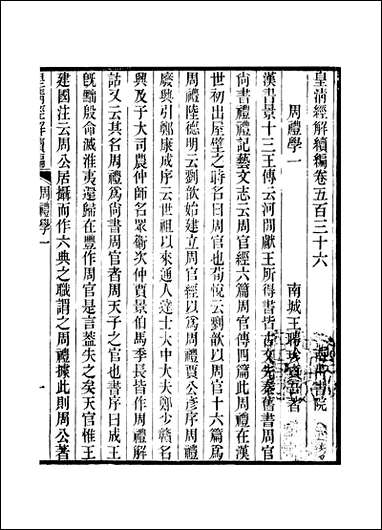 皇淸經解續編卷五百三十六
周禮學一
南城王聘珍
著
漢書景十三王傳云河間獻王所得書皆古文先秦舊書周官
尙書禮禮記藝文志云周官經六篇周官傳四篇此周禮在漢
世初出屋壁之時名曰周官也荀悅云劉歆以周官十六篇爲
周禮陸德明云劉歆始建立周官經以爲周禮賈公彥序周禮
廢興引鄭康成序云世祖以來通人達士大中大夫鄭少贛名
興及子大司農仲師名眾衞次仲賈景伯馬季長皆作周禮解
詁又云其名周禮爲尙書周官者周天子之官也書序曰成王
旣黜殷命滅淮夷還歸在豐作周官是言葢失之矣天官惟王
建國注云周公居攝而作六典之職謂之周禮據此則周公著
皇淸經解續編
周禮學一
一